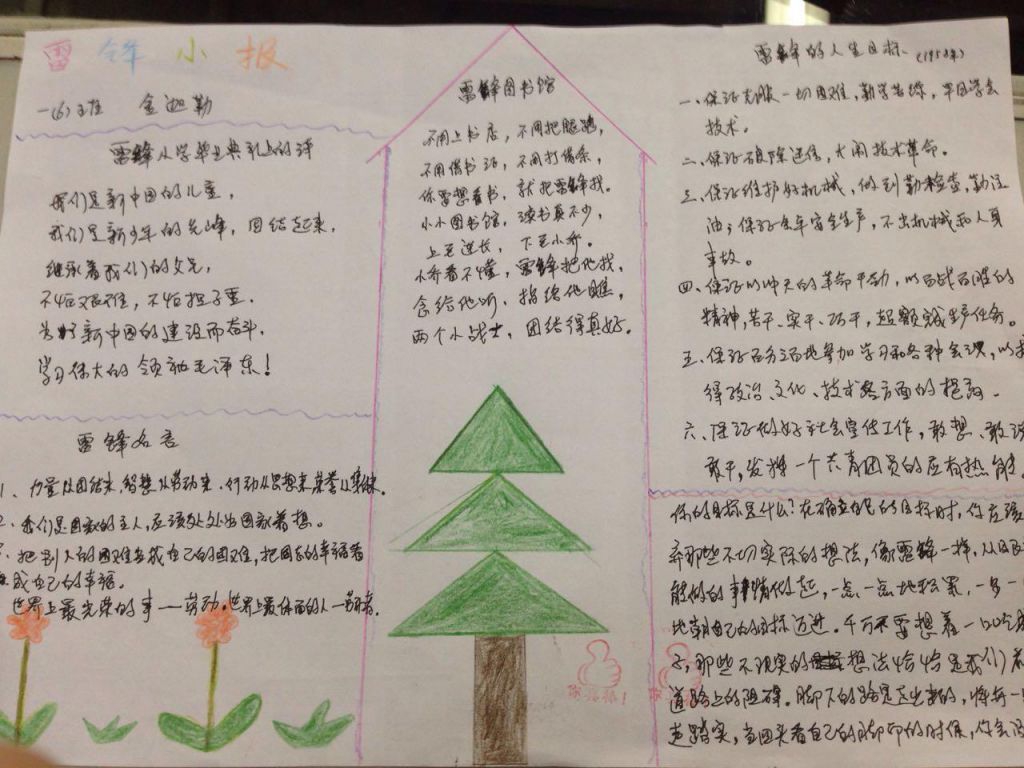 雷锋小报
一(6)班 金迦勒
雷锋小学毕业典礼上的讲
我们是新中国的儿童，
我们是新少年的先峰，团结起来，
继承着我们的父兄，
不怕艰难，不怕担子重，
为了新中国的建设而奋斗，
学习伟大的领袖毛泽东！
雷锋名言
1、力量从团结来，智慧从劳动来，行动从思想来，荣誉从集体来。
2、我们是国家的主人，应该处处为国家着想。
把别人的困难当成自己的困难，把同志的幸福看
成自己的幸福。
世界上最光荣的事——劳动。世界上最体面的人—劳动者。
雷锋图书馆
不用上书店，不用把腿跑，
不用借书证，不用打借条，
你要想看书，就把雷锋找。
小小图书馆，读书真不少，
上至连长，下至小乔。
小乔看不懂，雷锋把他找，
念给他听，指给他瞧，
两个小战士，团结得真好。
你真棒！
雷锋的人生目标 (1958年)
一、保证克服一切困难，勤学苦练，早日学会
技术。
二、保证破除迷信，大闹技术革命。
三、保证维护好机械，做到勤检查，勤注
油；保证全年安全生产，不出机械和人身
事故。
四、保证以冲天的革命干劲，以百战百胜的
精神，苦干、实干、巧干，超额完成生产任务。
五、保证百分之百地参加学习和各种会议，以求
得政治、文化、技术各方面的提高。
六、保证做好社会宣传工作，敢想、敢说
敢干，发挥一个共青团员的应有热能
你的目标是什么？在确立自己的目标时，你应该
弃那些不切实际的想法，像雷锋一样，从自己
能做的事情做起，一点一点地积累，一步一
地朝自己的目标迈进。千万不要想着一口吃成
子，那些不现实的想法恰恰是我们前
道路上的阻碍。脚下的路是走出来的，将每一
走踏实，当回头看自己的脚印的时候，你会